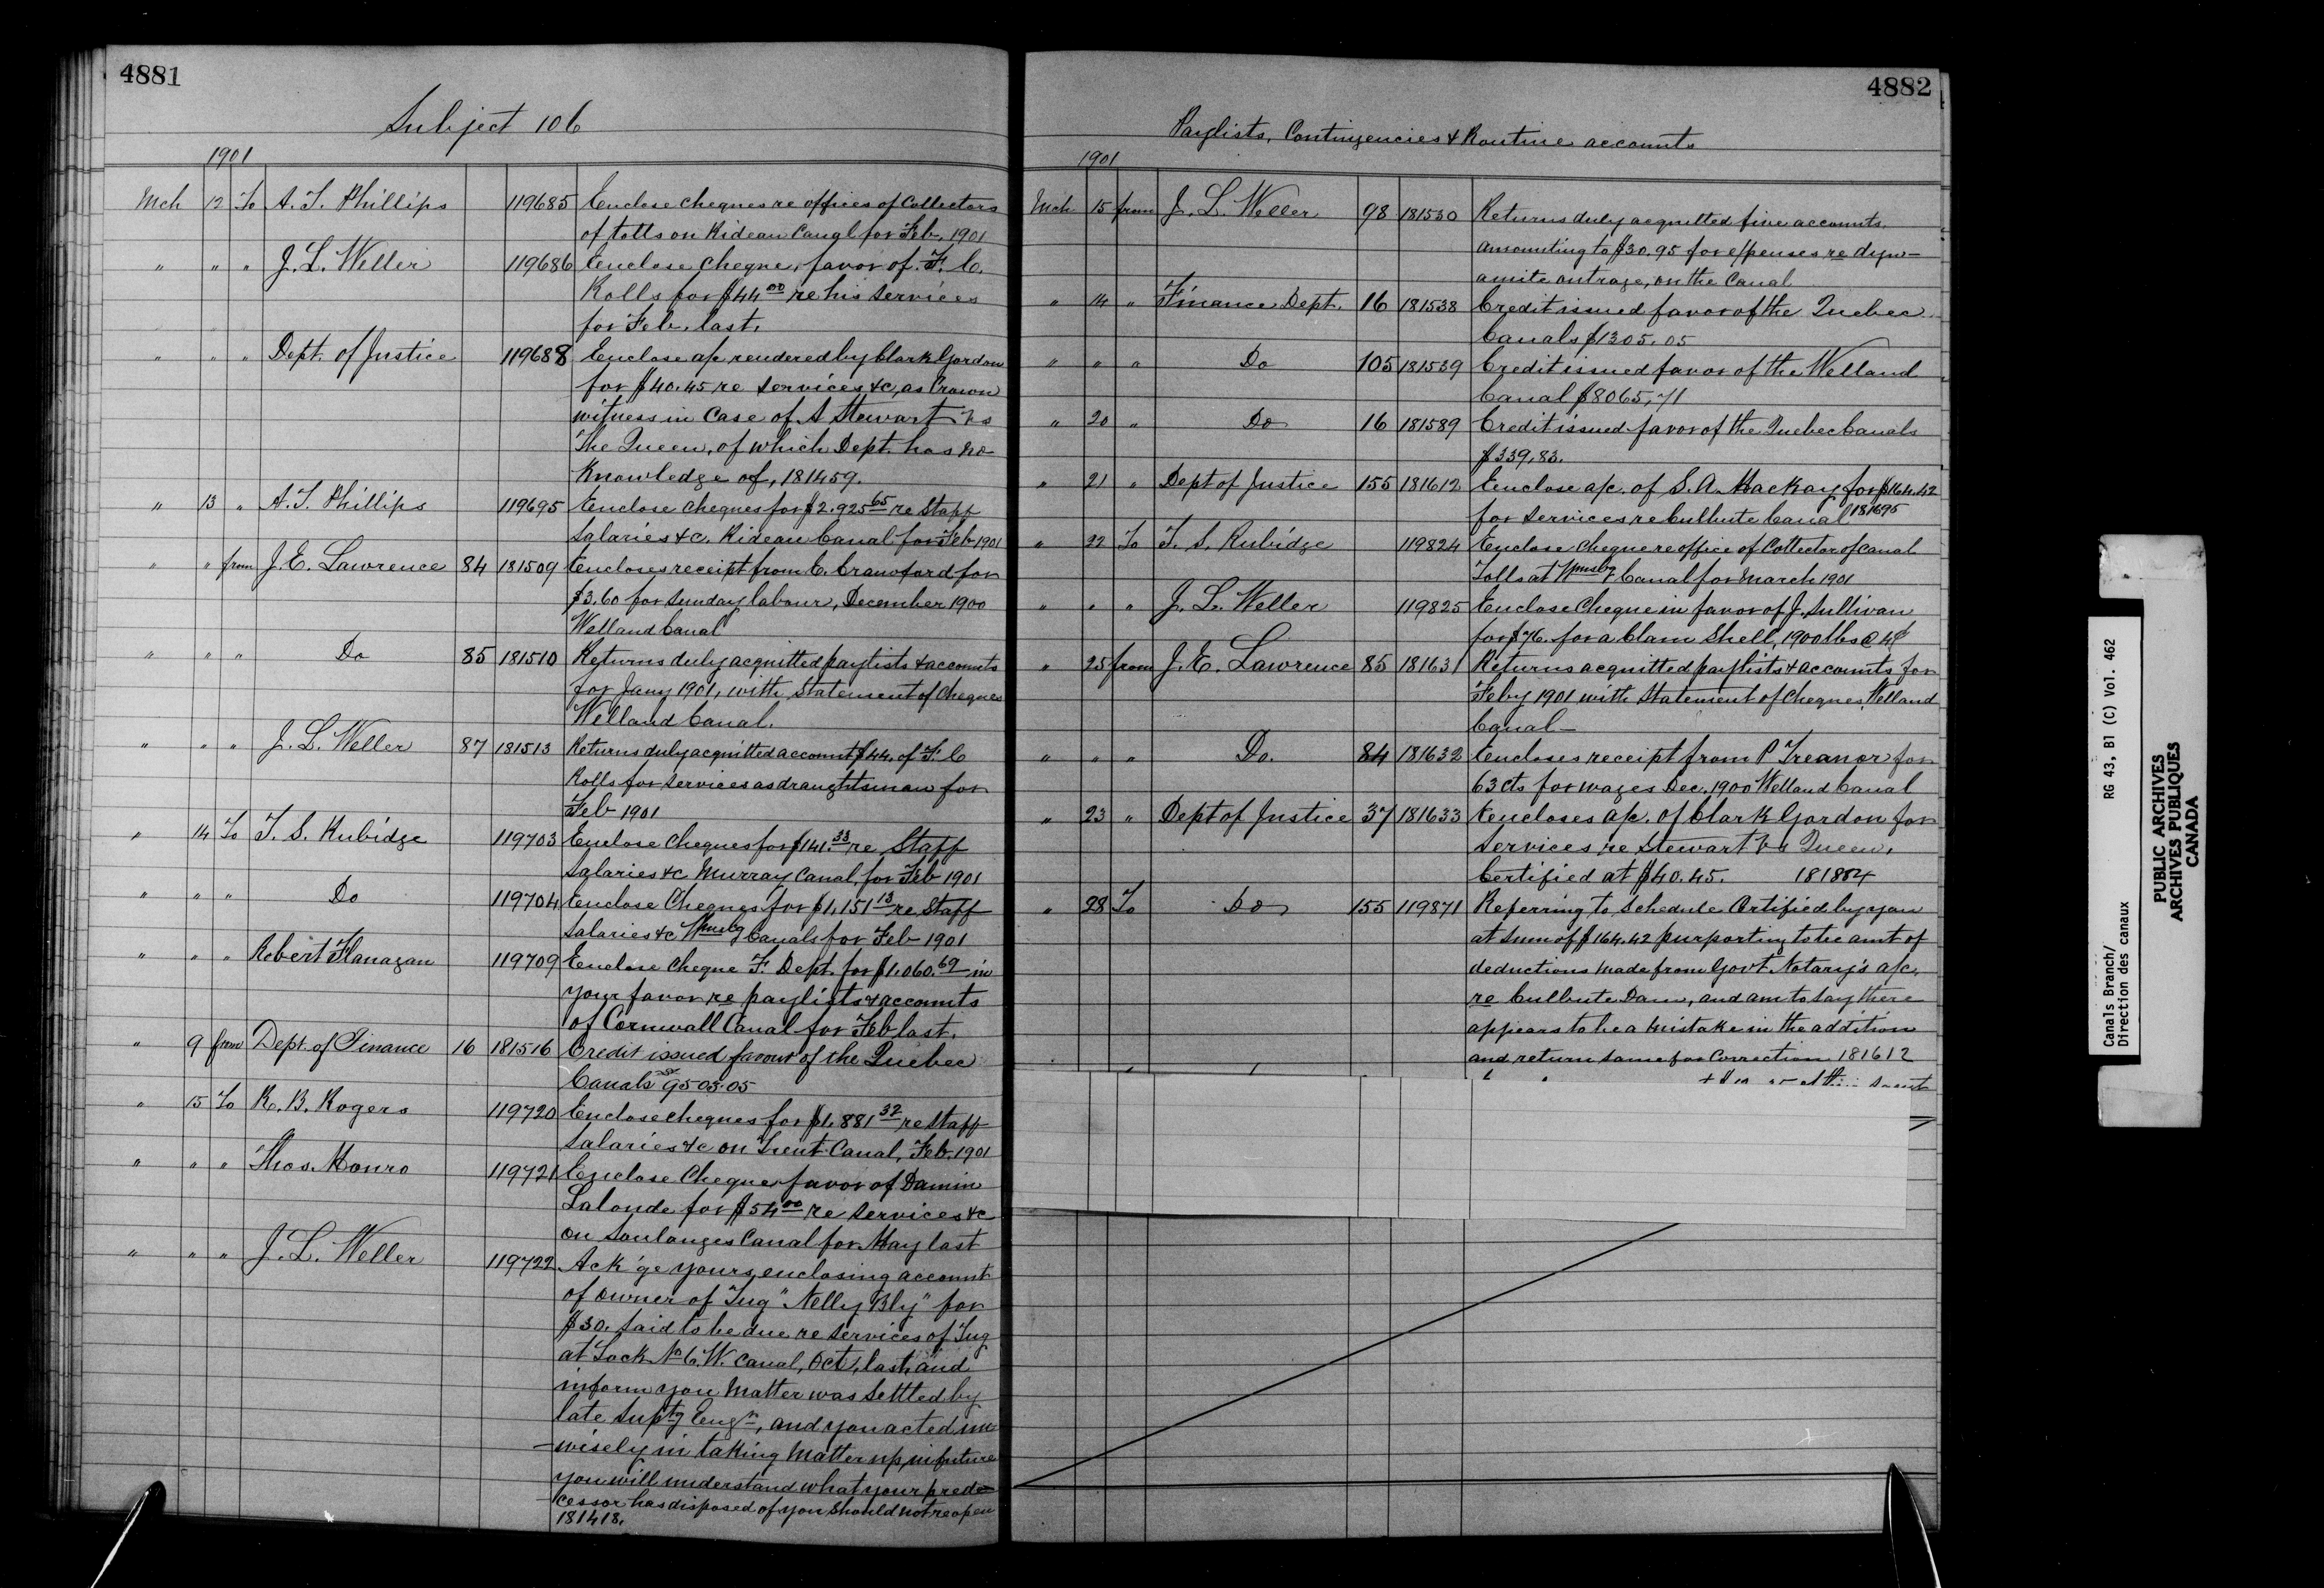 4881
Subject 106
1901
Mch 12 To A. T. Phillips 119685 Enclose cheques re offices of Collectors
of tolls on Rideau Canal for Feb. 1901
" " " J. L. Weller 119686 Enclose cheque, favor of F. C.
Rolls for $44.00 re his services
for Feb. last.
" " " Dept. of Justice 119688 Enclose a/c rendered by Clark Gordon
for $40.45 re services &c, as Crown
witness in Case of A Stewart vs
The Queen, of which Dept. has no
Knowledge of, 181459.
" 13 " A. T. Phillips 119695 Enclose cheques for $2.925 65 re Staff
Salaries &c. Rideau Canal for Feb 1901
" " from J. E. Lawrence 84 181509 Encloses receipt from C. Crawford for
$3.60 for Sunday labour, December 1900
Welland Canal
" " " Do 85 181510 Returns duly acquitted paylists & accounts
for Jany 1901, with statement of Cheques
Welland Canal.
" " " J. L. Weller 87 181513 Returns duly acquitted account $44. of F. C
Rolls for services as draughtsman for
Feb 1901
" 14 To T. S. Rubidge 119703 Enclose cheques for $141.33 re Staff
Salaries &c Murray Canal, for Feb 1901
" " " Do 119704 Enclose Cheques for $1,151 13 re Staff
Salaries &c Wmsbg Canals for Feb 1901
" " " Robert Flanagan 119709 Enclose cheque F. Dept. for $1.060.69 in
your favor re paylists & accounts
of Cornwall Canal for Feb last.
" 9 from Dept. of Finance 16 181516 Credit issued favour of the Quebec
Canals $9505.05
" 15 To R. B. Rogers 119720 Enclose cheques for $1,881 32 re Staff
Salaries &c on Trent Canal, Feb. 1901
" " " Thos. Monro 119721 Enclose Cheque favor of Damin
Lalonde for $54 00 re services &c
on Soulanges Canal for May last
" " " J. L. Weller 119722 Ack'ge yours, enclosing account
of owner of Tug "Nelly Bly" for
$30. said to be due re services of Tug
at Lock No 6. W. Canal, Oct. last, and
inform you matter was settled by
late Suptg Engr, and you acted un
-wisely in taking matter up, in future
you will understand what your prede
-cessor has disposed of you should not reopen
181418.
4882
Paylists, Contingencies & Routine accounts
1901
Mch 15 from J. L. Weller 98 181530 Returns duly acquitted five accounts
amounting to $30.95 for expenses re dyn-
amite outrage, on the Canal
" 14 " Finance Dept. 16 181538 Credit issued favor of the Quebec
Canals $1305.05
" " " Do 105 181539 Credit issued favor of the Welland
Canal $8065,71
" 20 " Do 16 181589 Credit issued favor of the Quebec Canals
$339,83.
" 21 " Dept of Justice 155 181612 Enclose a/c. of S. A. Mackay for $164.42
for services re Culbute Canal 181695
" 22 To T. S. Rubidge 119824 Enclose cheque re office of Collector of Canal
Tolls at Wmsbg Canal for March 1901
" " " J. L. Weller 119825 Enclose Cheque in favor of J. Sullivan
for $76. for a Clam Shell, 1900 lbs @ 4¢
" 25 from J. E. Lawrence 85 181631 Returns acquitted paylists & accounts for
Feby 1901 with Statement of Cheques, Welland
Canal -
" " " Do. 84 181632 Encloses receipt from P Treanor for
63 cts for wages Dec. 1900 Welland Canal
" 23 " Dept of Justice 37 181633 Encloses a/c. of Clark Gordon for
services re Stewart vs Queen,
Certified at $40.45. 181884
" 28 To Do 155 119871 Referring to schedule Certified by you
at sum of $164.42 purporting to be amt of
deductions made from Govt Notary's a/c,
re Culbute Dam, and am to say there
appears to be a mistake in the addition
and return same for Correction 181612
Canals Branch/
Direction des canaux
RG 43, B1 (C) Vol. 462
PUBLIC ARCHIVES
ARCHIVES PUBLIQUES
CANADA